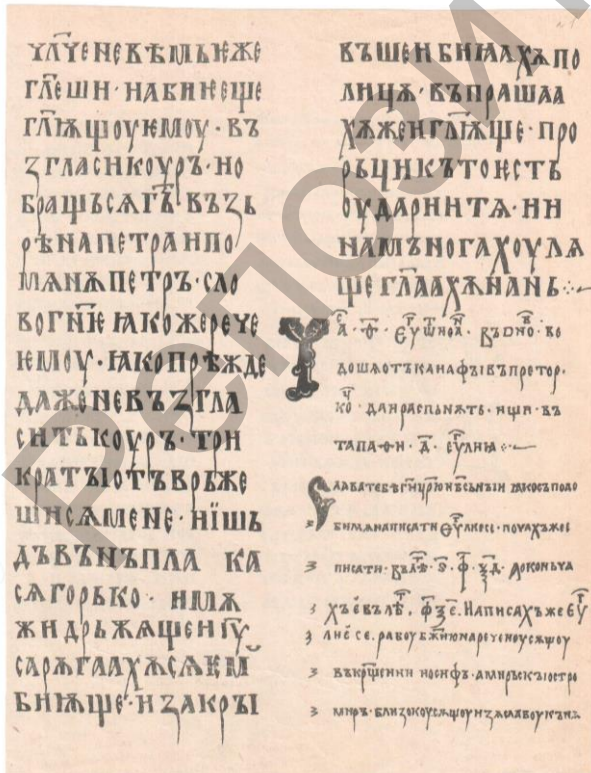 чл҃че не вѣмь ѥже
гл҃еши · и абиѥ еще
гл҃ѭщоу ѥмоу · въ
згласи коуръ · и о
бращь сѧ г҃ь възь
рѣ на петра и по
мѧнѫ петръ · сло
во г҃нѥ ꙗко же рече
ѥмоу · ꙗко прѣжде
даже не възгла
ситъ коуръ · три
краты отъвръже
ши сѧ мене · и їшь
дъ вънъ пла ка
сѧ горько · и мѫ
жи дрьжѧщеи і҃у
са рѫгаахѫ сѧ ѥмꙋ
биѭще · и закры
въше и биꙗахѫ по
лицѫ · въпрашаа
хѫ же и гл҃ѭще · про
рьци къто ѥсть
оударии тѧ · и и
на мънога хоулѧ
ще гл҃аахѫ на нь ·:·
дошѧ отъ канафы въ претор·
да и распьнѫть · ищи · въ
тапа ѳ и · д҃ · еу҃лиꙗ ·:·
Слава тебѣ г҃и ц҃рю н҃бсьныи ꙗко съподо
би мѧ написати еу҃лие се · почахъ же е
писати · въ лѣ҃ · ѕ҃ · ф҃ · ѯд҃ · А оконьча
хъ е въ лѣ҃ · ф҃ѯе · Написахъ же еу҃
лие се · рабоу б҃жию нареченоу сѫщоу
въ кр҃щении иосифъ · а мирьскы остро
миръ · близокоу сѫщоу изѧславоу кънѧ
РЕПОЗИ